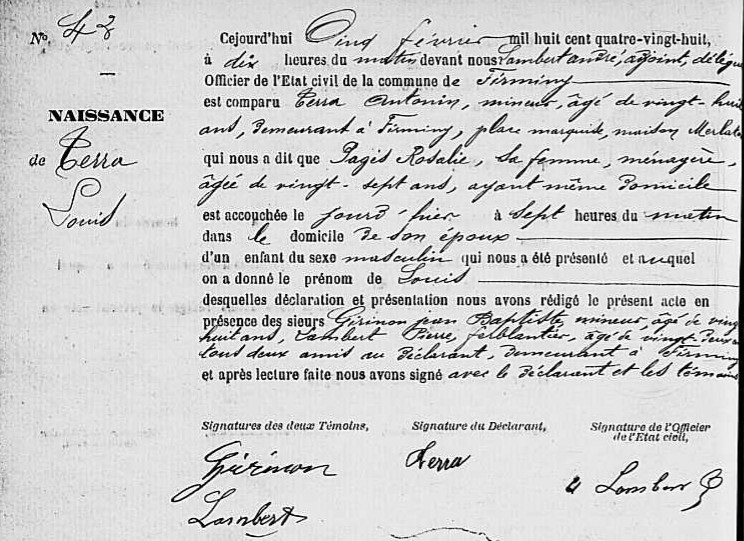 N°. 43
NAISSANCE
de Terra
Louis
Cejourd'hui Cinq février mil huit cent quatre-vingt-huit,
à dix heures du matin devant nous Lambert andré, adjoint, délégué
Officier de l'Etat civil de la commune de Firminy
est comparu Terra Antonin, mineur, âgé de vingt-huit
ans, demeurant à Firminy, place marquise, maison
qui nous a dit que Pagis Rosalie, sa femme, ménagère,
âgée de vingt-sept ans, ayant même domicile
est accouchée le jourd'hier à sept heures du matin
dans le domicile de son époux
d'un enfant du sexe masculin qui nous a été présenté et auquel
on a donné le prénom de Louis
desquelles déclaration et présentation nous avons rédigé le présent acte en
présence des sieurs Girinon jean Baptiste, mineur, âgé de vingt
huit ans, Lambert Pierre, ferblantier, âgé de vingt-deux ans
tous deux amis au déclarant, demeurant à Firminy
et après lecture faite nous avons signé avec le déclarant et les témoins
Signatures des deux Témoins, Signature du Déclarant, Signature de l'Officier
de l'Etat civil,
Girinon Terra a Lambert
Lambert